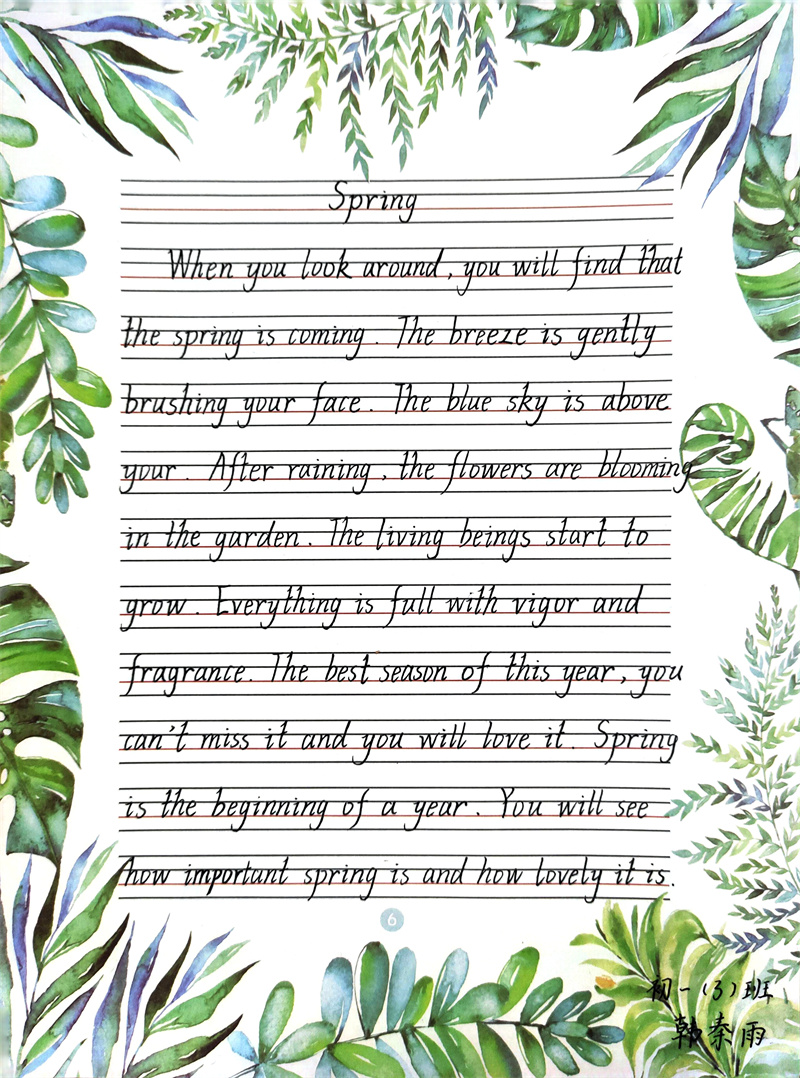 Spring
When you look around, you will find that
the spring is coming. The breeze is gently
brushing your face. The blue sky is above
your. After raining, the flowers are blooming
in the garden. The living beings start to
grow. Everything is full with vigor and
fragrance. The best season of this year, you
can't miss it and you will love it. Spring
is the beginning of a year. You will see
how important spring is and how lovely it is.
6
初一(3)班
韩秦雨